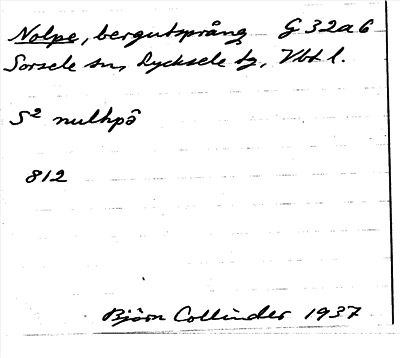 Nolpe, bergutsprång G 32 a 6
Sorsele sn, Lycksele tg, Vbt l.
S² nulhpō
812
Björn Collinder 1937